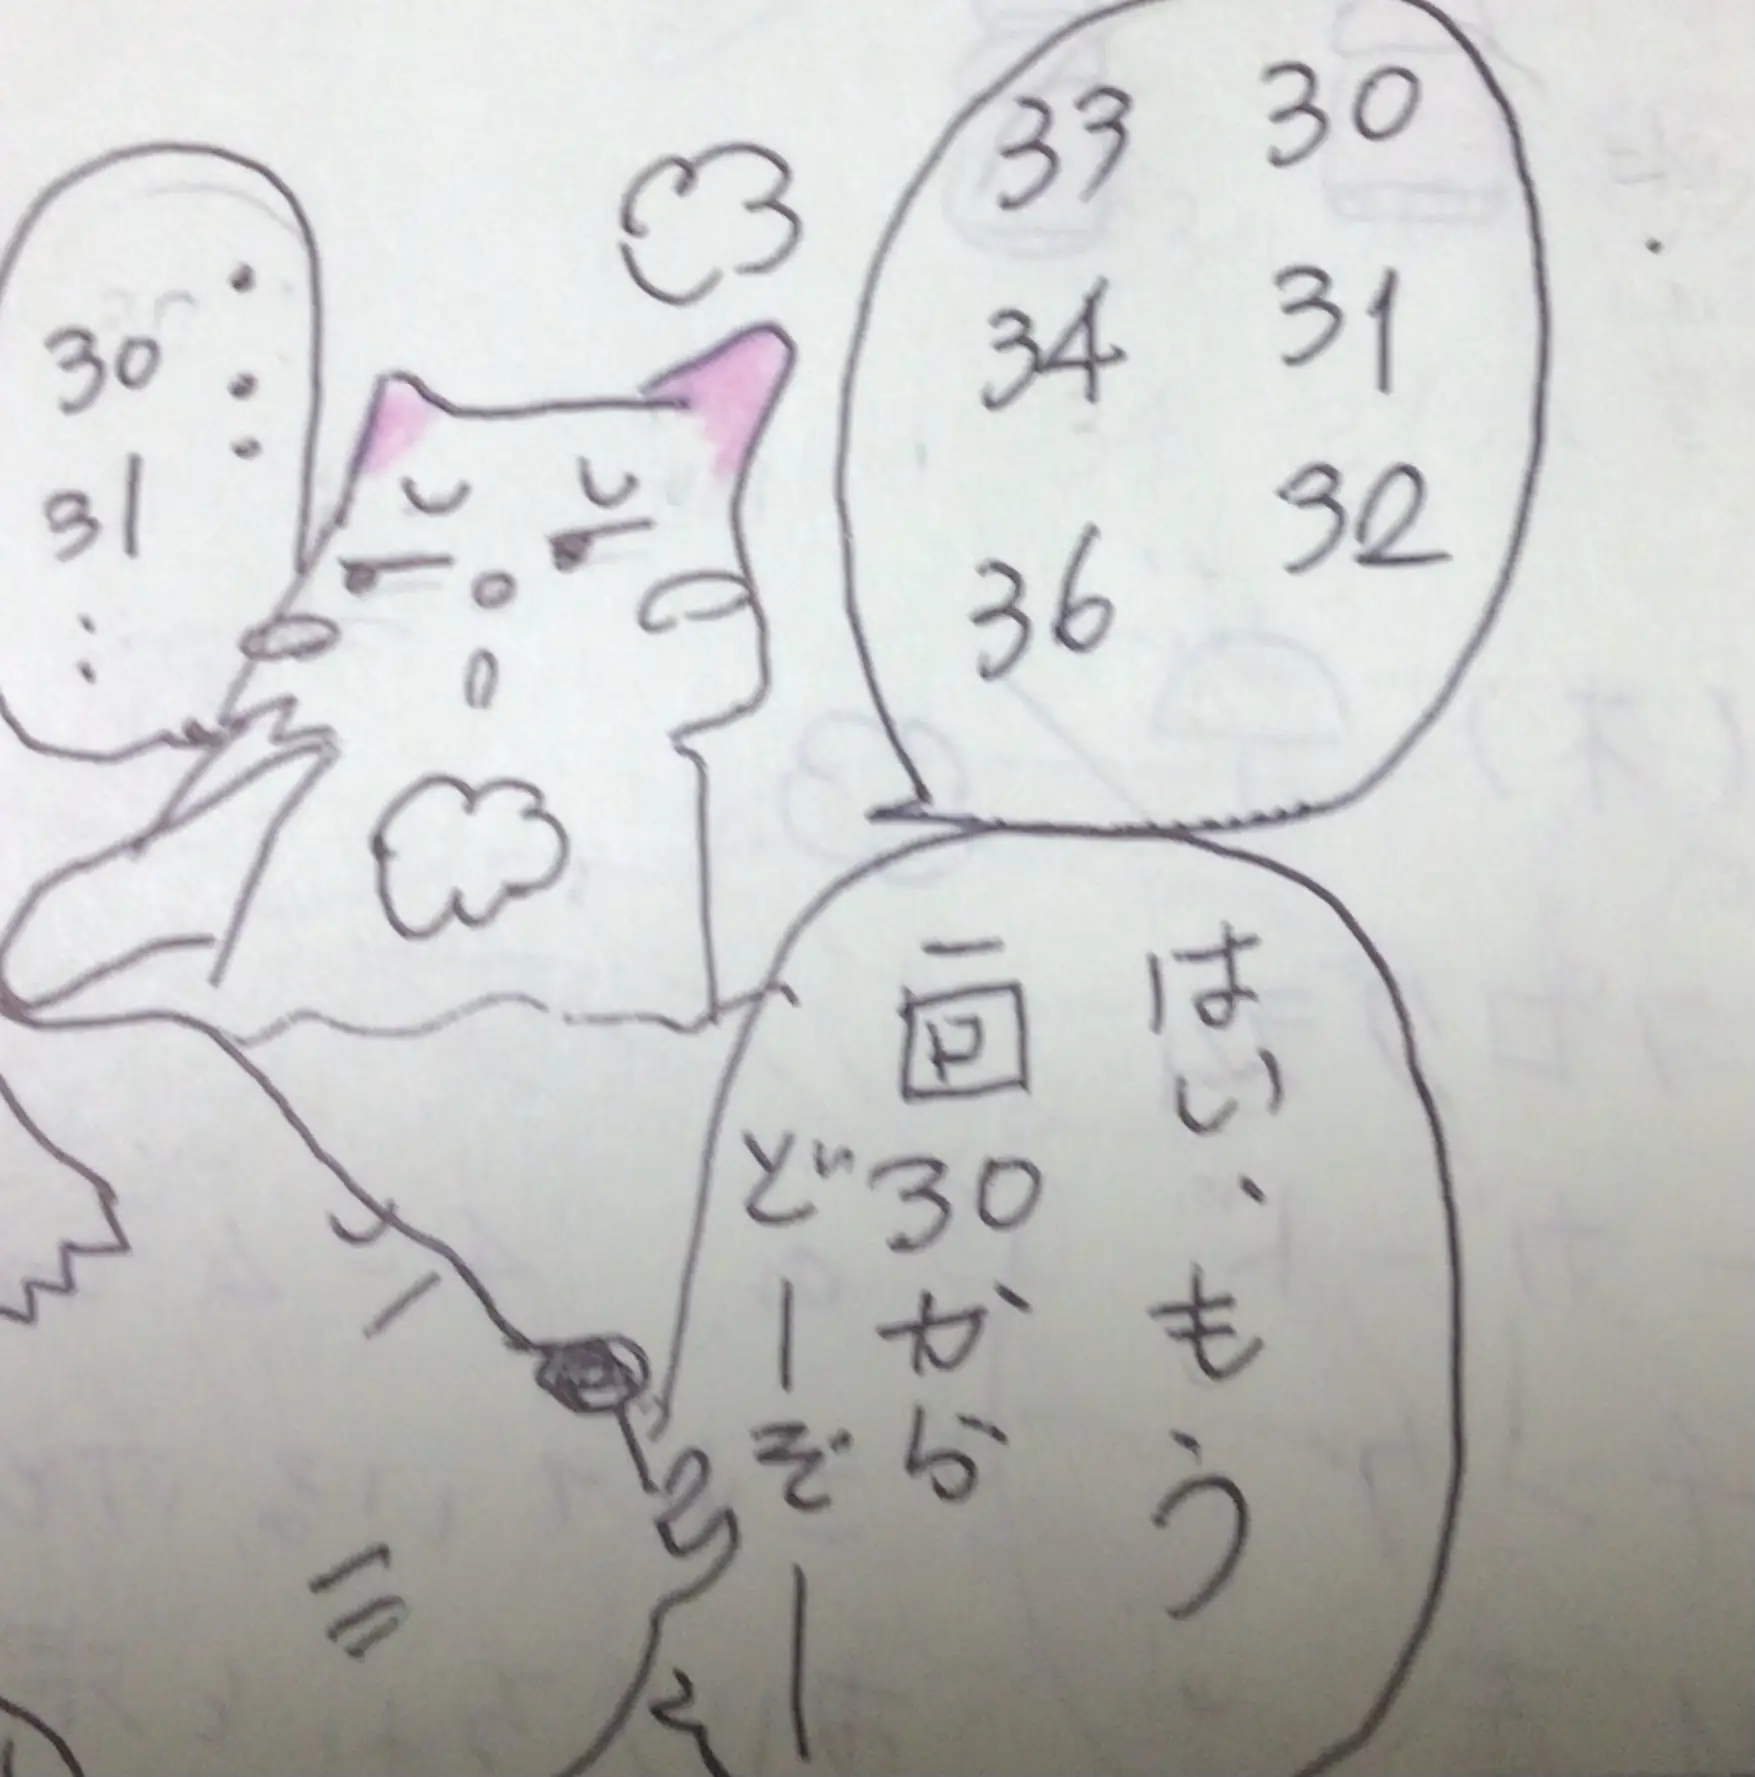 30
31
32
33
34
36
はい、もう
一回30から
どーぞー
・・・
30
31
：